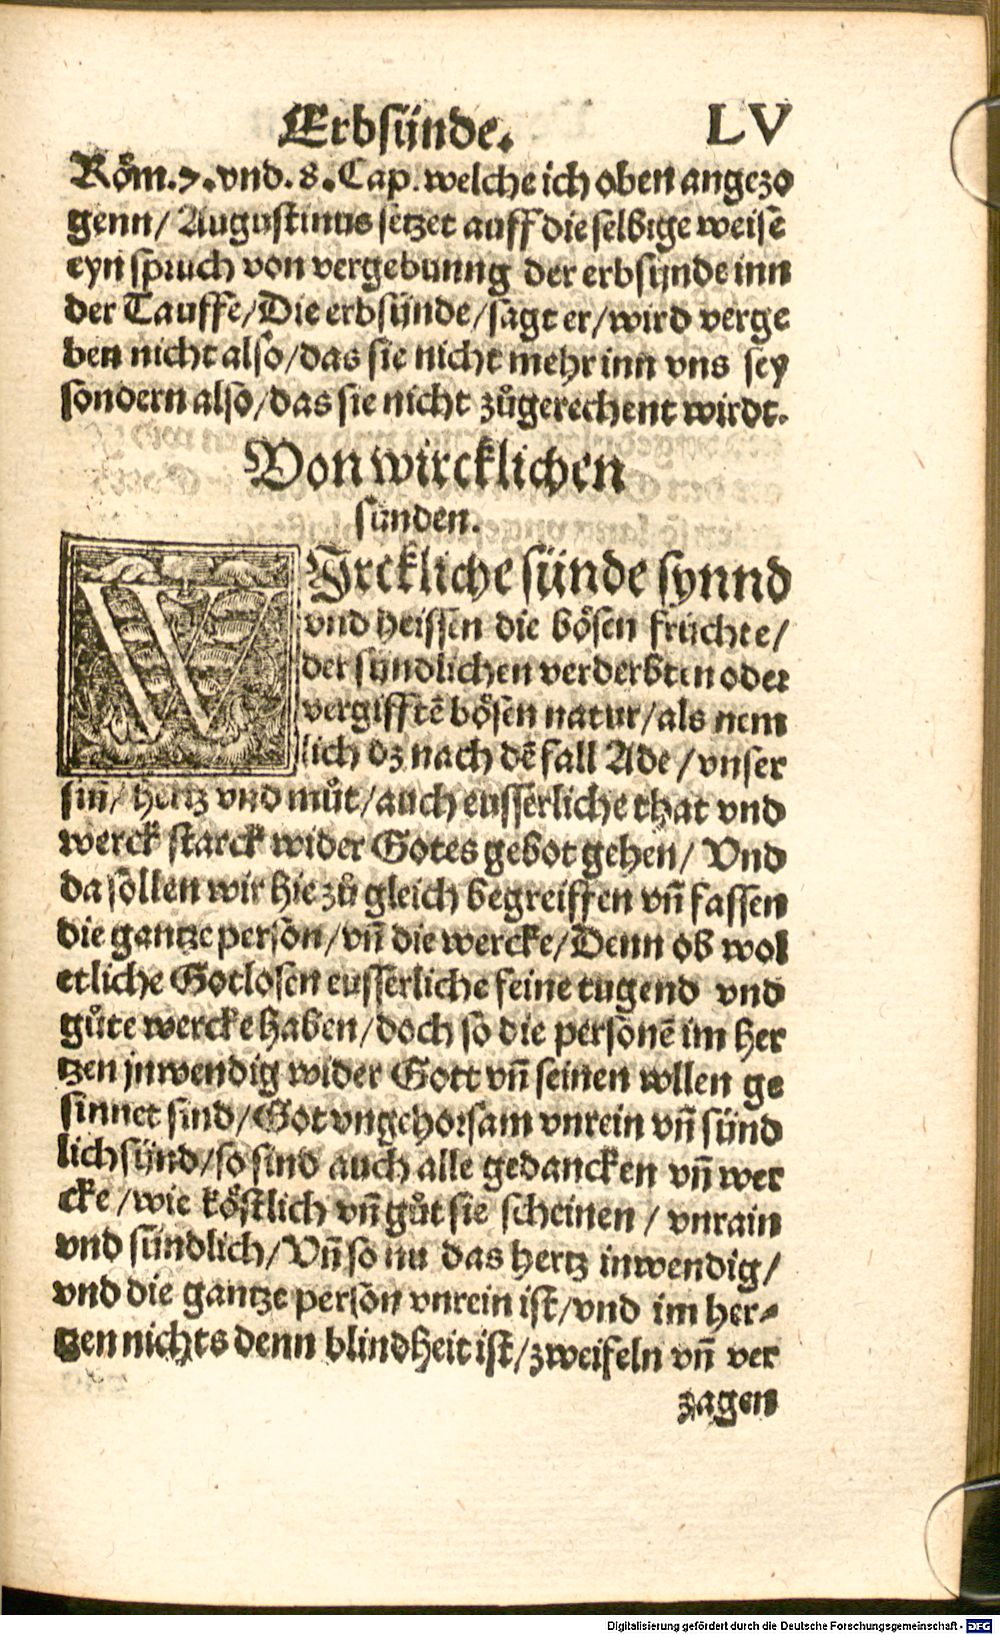 Erbsünde. LV
Röm.7.vnd.8.Cap.welche ich oben angezo
genn/ Augustinus setzet auff die selbige weise
eyn spruch von vergebunng der erbsünde inn
der Tauffe/Die erbsünde/sagt er/wird verge
ben nicht also/das sie nicht mehr inn vns sey
sondern also/das sie nicht zůgerechent wirdt.
Von wircklichen
sünden.
WJrckliche sünde synnd
vnd heissen die bösen früchte/
der sündlichen verderbten oder
vergifftē bösen natur/als nem
lich dz nach dē fall Ade/vnser
sin̄/ hertz vnd můt/auch eusserliche that vnd
werck starck wider Gotes gebot gehen/ Vnd
da sollen wir hie zů gleich begreiffen vn̄ fassen
die gantze person/vn̄ die wercke/Denn ob wol
etliche Gotlosen eusserliche feine tugend vnd
gůte wercke haben/doch so die personē im her
tzen jnwendig wider Gott vn̄ seinen wllen ge
sinnet sind/Got vngehorsam vnrein vn̄ sünd
lich sünd/so sind auch alle gedancken vn̄ wer
cke/wie köstlich vn̄ gůt sie scheinen/ vnrain
vnd sündlich/Vn̄ so nu das hertz inwendig/
vnd die gantze person vnrein ist/vnd im her-
tzen nichts denn blindheit ist/zweifeln vn̄ ver
zagen
Digitalisierung gefördert durch die Deutsche Forschungsgemeinschaft - DFG